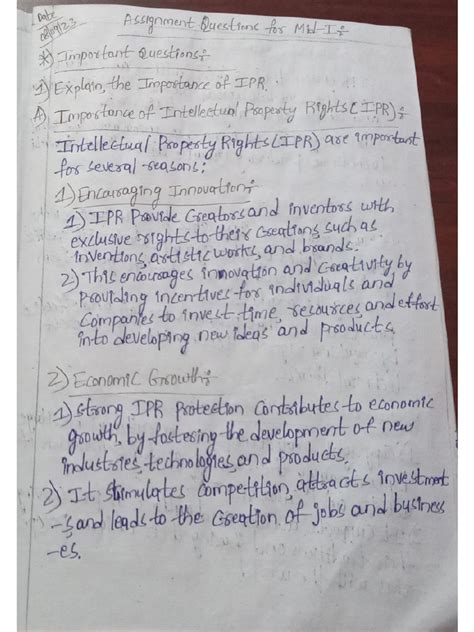 Date
08/09/23
Assignment Questions for Mid-I:
*) Important Questions:
1) Explain, the Importance of IPR.
A) Importance of Intellectual Property Rights (IPR):
Intellectual Property Rights (IPR) are important
for several reasons:
1) Encouraging Innovation:
1) IPR Provide Creators and inventors with
exclusive rights to their Creations, such as
inventions, artistic works, and brands.
2) This encourages innovation and Creativity by
Providing incentives for individuals and
Companies to invest time, resources, and effort
into developing new ideas and products.
2) Economic Growth:
1) Strong IPR Protection Contributes to economic
growth, by fostering the development of new
industries, technologies, and products.
2) It Stimulates Competition, attracts investment
-s, and leads to the Creation of jobs and business
-es.